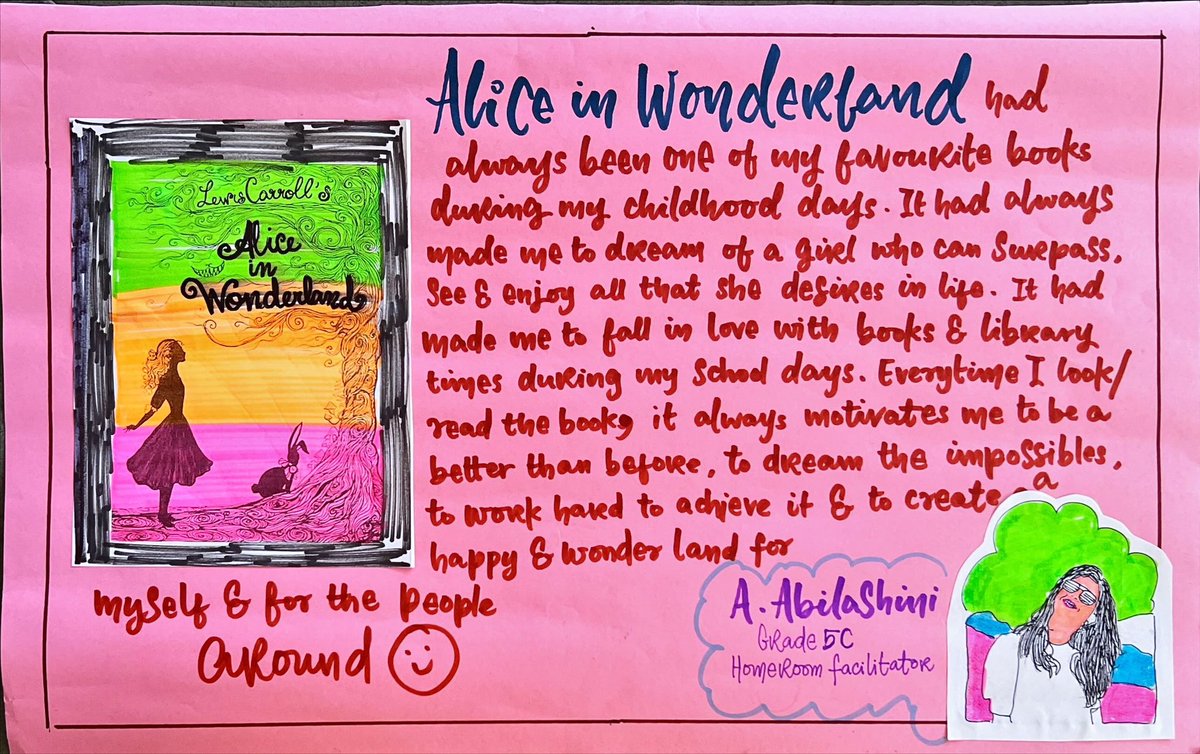 Lewis Carroll's
Alice
in
Wonderland
Alice in Wonderland had
always been one of my favourite books
during my childhood days. It had always
made me to dream of a girl who can surpass,
see & enjoy all that she desires in life. It had
made me to fall in love with books & library
times during my school days. Everytime I look/
read the book, it always motivates me to be a
better than before, to dream the impossibles,
to work hard to achieve it & to create a
happy & wonder land for
myself & for the people
around
A. Abilashini
Grade 5C
Homeroom facilitator